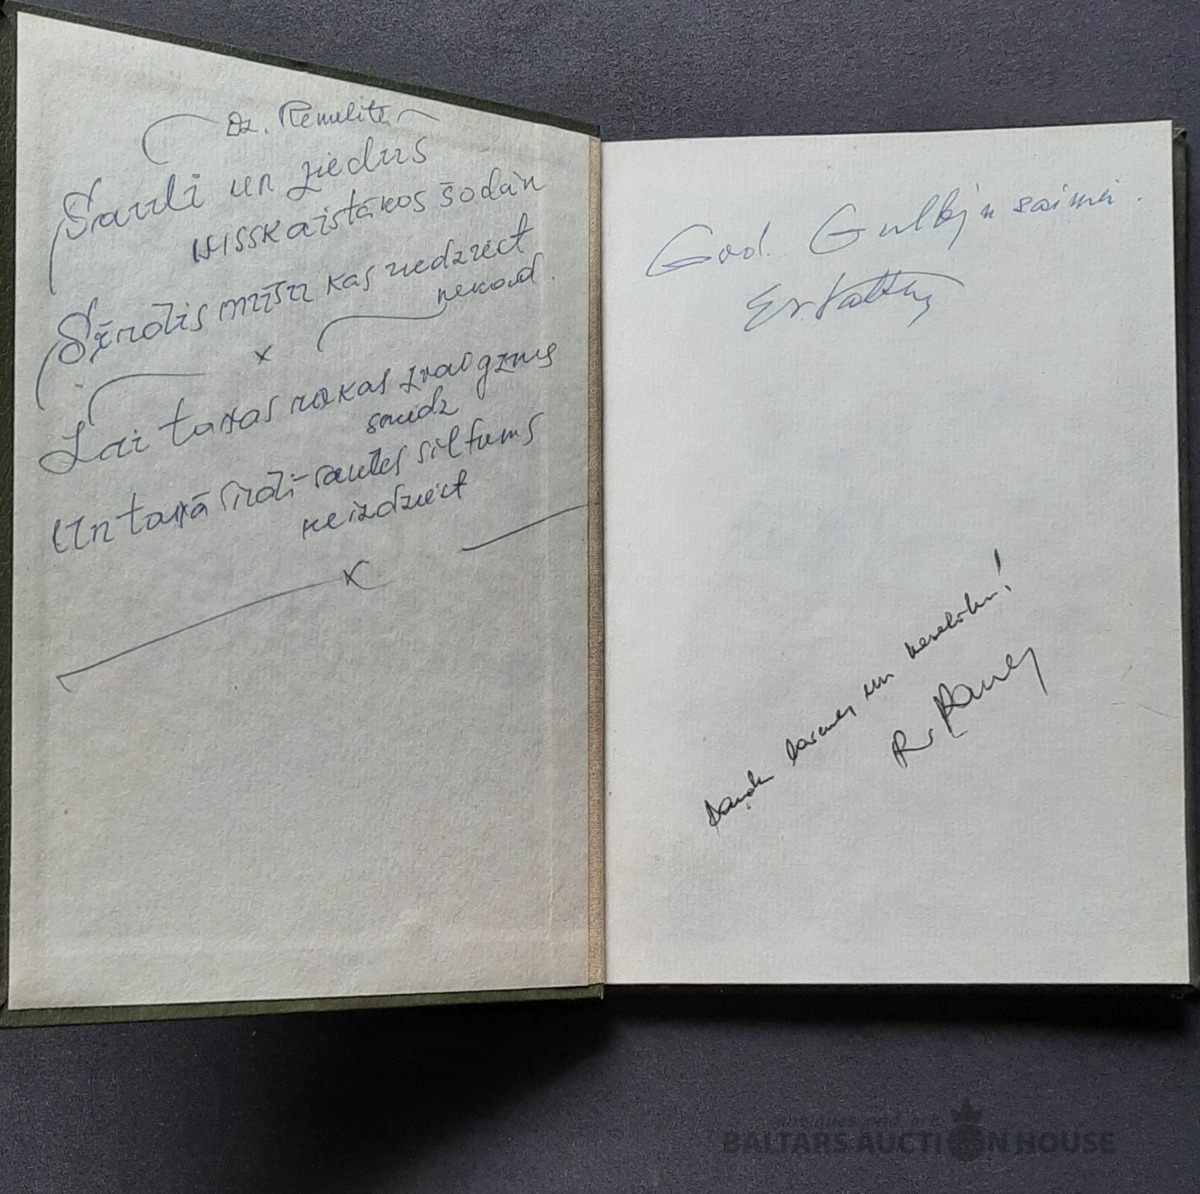 Dz. Rēmelite
Sauli un ziedus
visskaistākos šodan
mūsu kas nedziest
nekad.
x
Lai tavas rokas zvaigznes
sniedz
Un tavā sirdī saules siltums
neizdziest
x
God. Gulbju saimei.
daudz laimes un veselību!
antiques and art
BALTARS AUCTION HOUSE